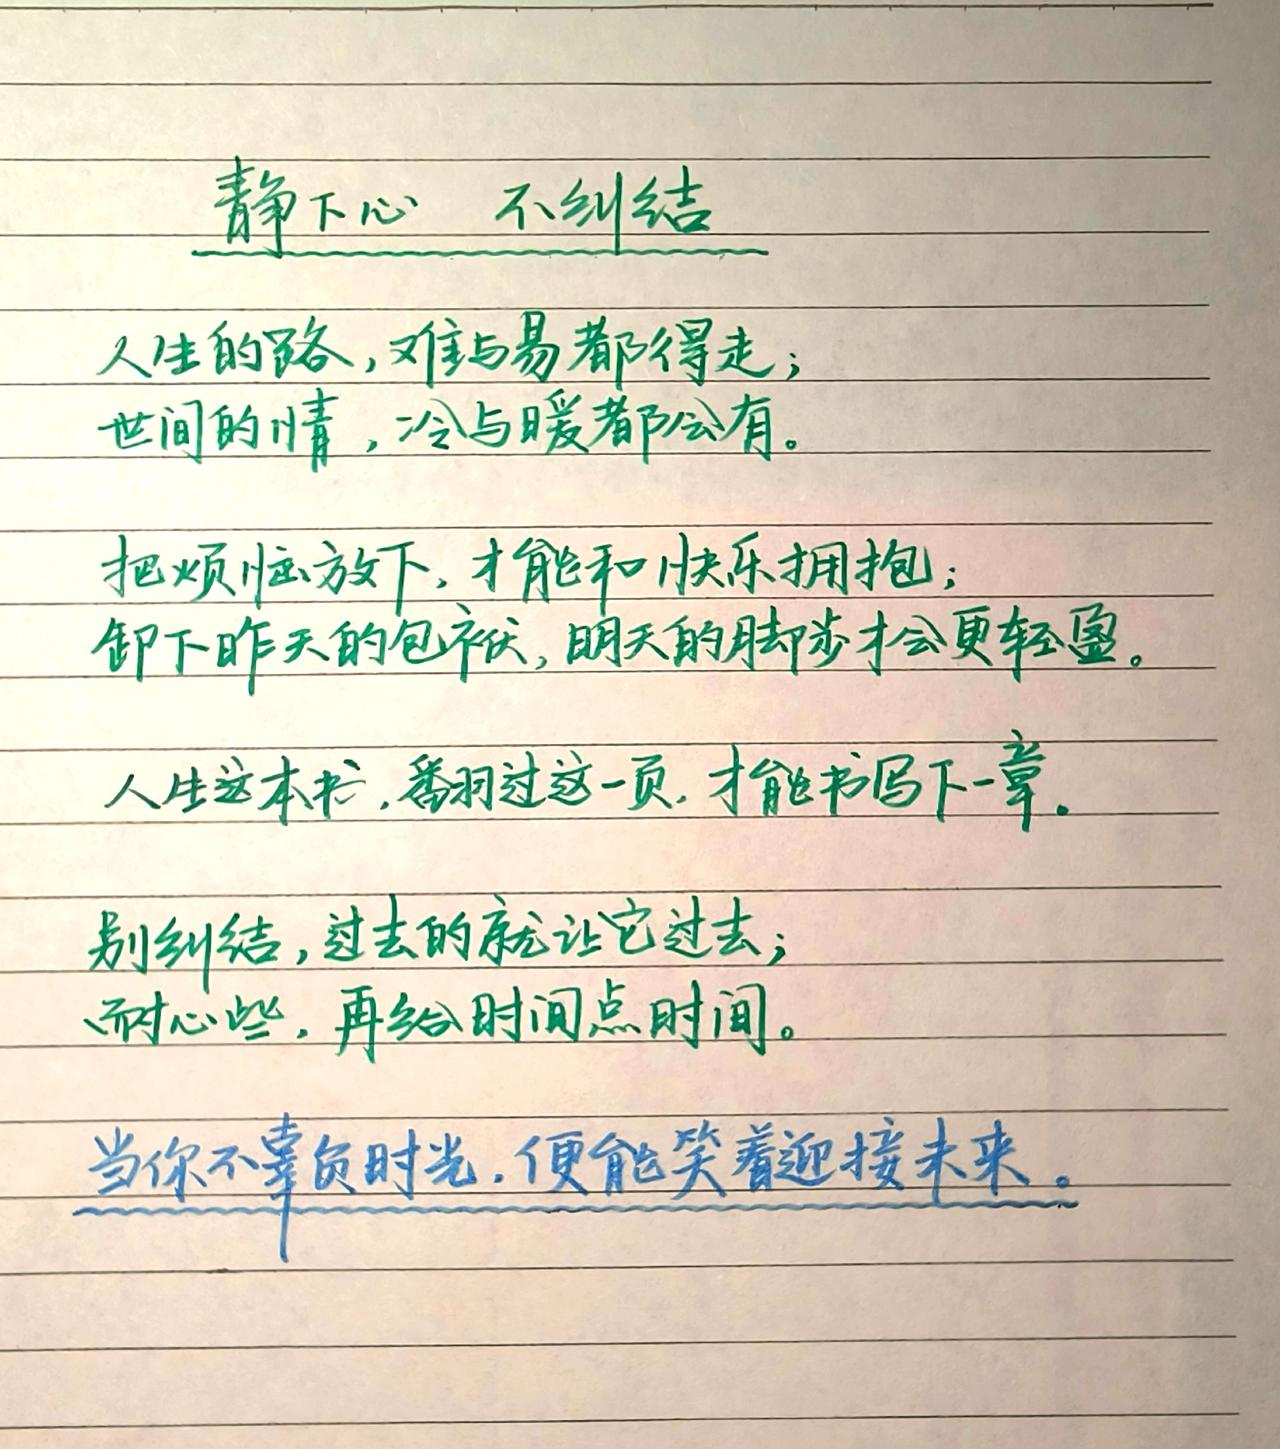 静下心 不纠结
人生的路,难与易都得走;
世间的情,冷与暖都会有。
把烦恼放下,才能和快乐拥抱;
卸下昨天的包袱,明天的脚步才会更轻盈。
人生这本书,翻过这一页,才能书写下一章。
别纠结,过去的就让它过去;
耐心些,再给时间点时间。
当你不辜负时光,便能笑着迎接未来。